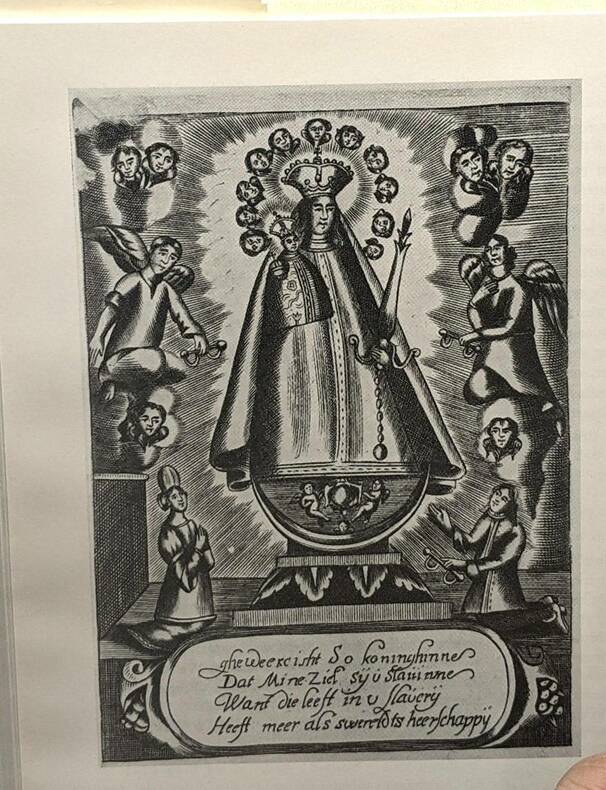 gheweercisht So koninghinne
Dat Mine Ziel sÿ ú slaúinne
Want die leeft in ú slaúerÿ
Heeft meer als swereldts heerschappÿ